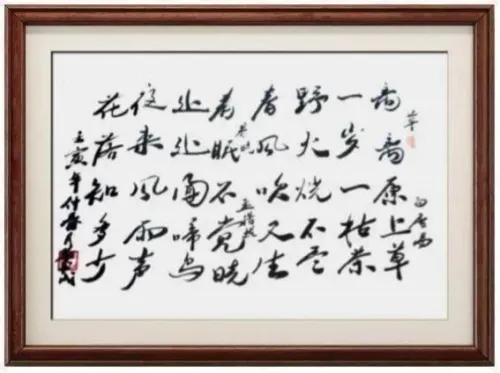 草
白居易
离离原上草
一岁一枯荣
野火烧不尽
春风吹又生
春晓
孟浩然
春眠不觉晓
处处闻啼鸟
夜来风雨声
花落知多少
壬寅年